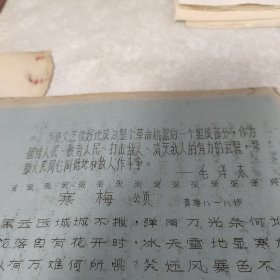 使文艺很好地成为整个革命机器的一个组成部分，作为
团结人民、教育人民、打击敌人、消灭敌人的有力的武器，帮
助人民同心同德地和敌人作斗争。
——毛泽东
寒梅颂
青海八·一八作
黑云压城城不摧，弹雨刀光奈何谁
花落自有花开时，冰天雪地显寒
有万难何所惧？笑迎风暴色不